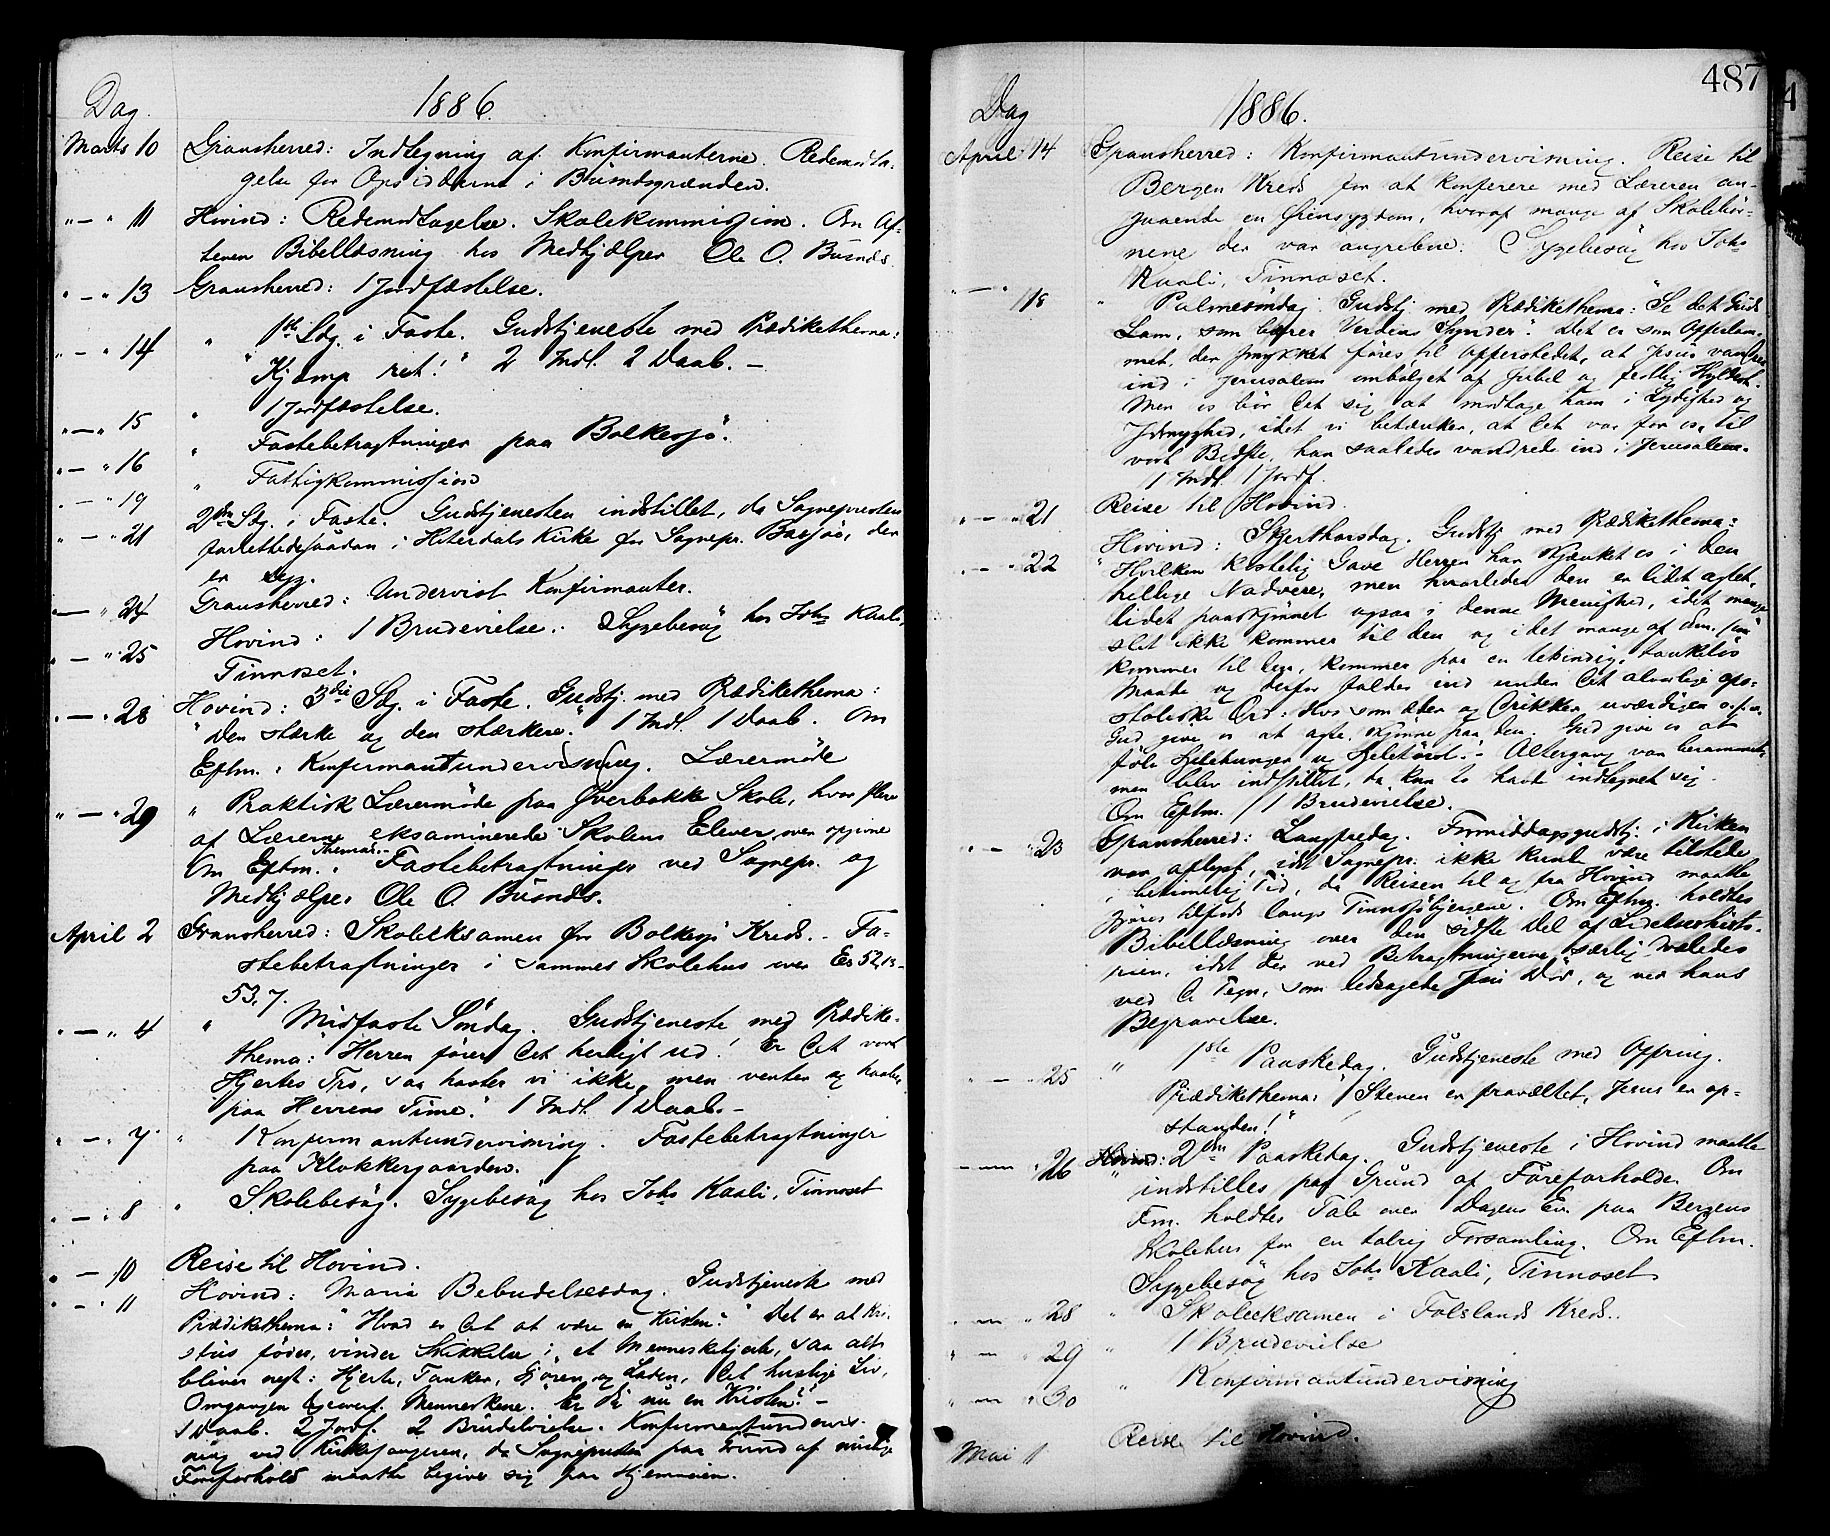 Dag. 1886.
Marts 10 Gransherred: Indtegning af Konfirmanterne. Redemodta-
gelse for Opsidderne i Busnesgrænden.
" — " 11 Hovind: Redemodtagelse. Skolekommission. Om Af-
tenen Bibellæsning hos Medhjælper Ole O. Busnes.
" — " 13 Gransherred: 1 Jordfæstelse.
" — " 14 " 1ste Sdg. i Faste. Gudstjeneste med Prædikethema:
"Kjæmp ret!" 2 Indl. 2 Daab. —
" — " 15 " 1 Jordfæstelse.
" — " 16 " Fastebetragtninger paa Bolkesjø.
" — " 19 " Fattigkommission
" — " 21 2den Sdg. i Faste. Gudstjenesten indstillet, da Sognepresten
forrettede saadan i Hiterdals Kirke for Sognepr. der
er syg.
" — " 24 Gransherred: Undervist Konfirmanter.
" — " 25 Hovind: 1 Brudevielse. Sygebesøg hos Johs Kaali,
Tinnoset.
" — " 28 Hovind: 3die Sdg. i Faste. Gudstj. med Prædikethema:
"Den stærke og den stærkere." 1 Indl. 1 Daab. Om
Eftm. Konfirmantundervisning. Lærermøde
" — " 29 " Praktisk Lærermøde paa Øverbakke Skole, hvor flere
af Lærerne eksaminerede Skolens Elever over opgivne
Themas.
Om Eftm. Fastebetragtninger ved Sognepr. og
Medhjælper Ole O. Busnes.
April 2 Gransherred: Skoleeksamen for Bolkesjø Kreds. - Fa-
stebetragtninger i sammes Skolehus over Es 52,13-
53,7.
" — " 4 " Midfaste Søndag. Gudstjeneste med Prædike-
thema: "Herren fører det herligt ud! Er det vort
Hjertes Tro, saa haster vi ikke, men venter og haaber
paa Herrens Time." 1 Indl. 1 Daab. —
" — " 7 " Konfirmantundervisning. Fastebetragtninger
paa Klokkergaarden.
" — " 8 " Skolebesøg. Sygebesøg hos Johs Kaali, Tinnoset
" — " 10 Reise til Hovind.
" — " 11 Hovind: Mariæ Bebudelsesdag. Gudstjeneste med
Prædikethema: "Hvad er det at være en Kristen?" Det er at Kri-
stus fødes, vinder Skikkelse i et Menneskehjerte, saa alt
bliver nyt: Hjerte, Tanker, Gjøren og Laden, det huslige Liv,
Omgangen Menneskene. "Er Du nu en Kristen?" —
1 Daab. 2 Jordf. 2 Brudevielse. Konfirmantundervis-
ning ved Kirkesangeren, da Sognepresten paa Grund af
Føreforhold maatte begive sig paa Hjemveien.
487
Dag 1886.
April 14 Gransherred: Konfirmantundervisning. Reise til
Bergen Kreds for at konferere med Læreren an-
gaaende en Øiensygdom, hvoraf mange af Skolebør-
nene der var angrebne. Sygebesøg hos Johs
Kaali, Tinnoset.
" — " 18 " Palmesøndag. Gudstj. med Prædikethema: "Se det Guds
Lam, som bærer Verdens Synder". Det er som Offerlam-
met, der smykket føres til Offerstedet, at Jesus vandrer
ind i Jerusalem ombølget af Jubel og festlig Hyldest.
Men os bør det sig at modtage ham i Lydighed og
Ydmyghed, idet vi betænker, at det var for os, til
vort Bedste, han saaledes vandrede ind i Jerusalem.
1 Indl. 1 Jordf.
" — " 21 Reise til Hovind.
" — " 22 Hovind: Skjærthorsdag. Gudstj. med Prædikethema:
"Hvilken kostelig Gave Herren har skjænket os i den
hellige Nadvere, men hvorledes den er lidet agtet,
lidet paaskjønnet ogsaa i denne Menighed, idet mange
slet ikke kommer til den og idet mange af dem, som
kommer til den, kommer paa en letsindig, tankeløs
Maade og derfor falder ind under det alvorlige apo-
stoliske Ord: Hvo som æder og drikker uværdigen o.s.v.
Gud give os at agte, skjønne paa den. Gud give os at
føle Sjelehunger og Sjeletørst!" — Altergang var berammet,
men blev indstillet, da kun to havde indtegnet sig.
Om Eftm. 1 Brudevielse.
" — " 23 Gransherred: Langfredag. Formiddagsgudstj. i Kirken
var aflyst, idet Sognepr. ikke kunde være tilstede
i betimelig Tid, da Reisen til og fra Hovind maatte
gjøres tilfods langs Tinnsjøbjergene. Om Eftm. holdtes
Bibellæsning over den sidste Del af Lidelseshisto-
rien, idet der ved Betragtningerne særlig dvæledes
ved de Tegn, som ledsagede Jesu Død, og ved hans
Begravelse.
" — " 25 " 1ste Paaskedag. Gudstjeneste med Ofring.
Prædikethema: "Stenen er fravæltet, Jesus er op-
standen!"
" — " 26 " 2den Paaskedag. Gudstjeneste i Hovind maatte
indstilles paa Grund af Føreforholde. Om
Fm. holdtes Tale over Dagens Ev. paa Bergens
Skolehus for en talrig Forsamling. Om Eftm.
Sygebesøg hos Johs Kaali, Tinnoset
" — " 28 " Skoleeksamen i Folslands Kreds.
" — " 29 " 1 Brudevielse
" — " 30 " Konfirmantundervisning
Mai 1 Reise til Hovind.